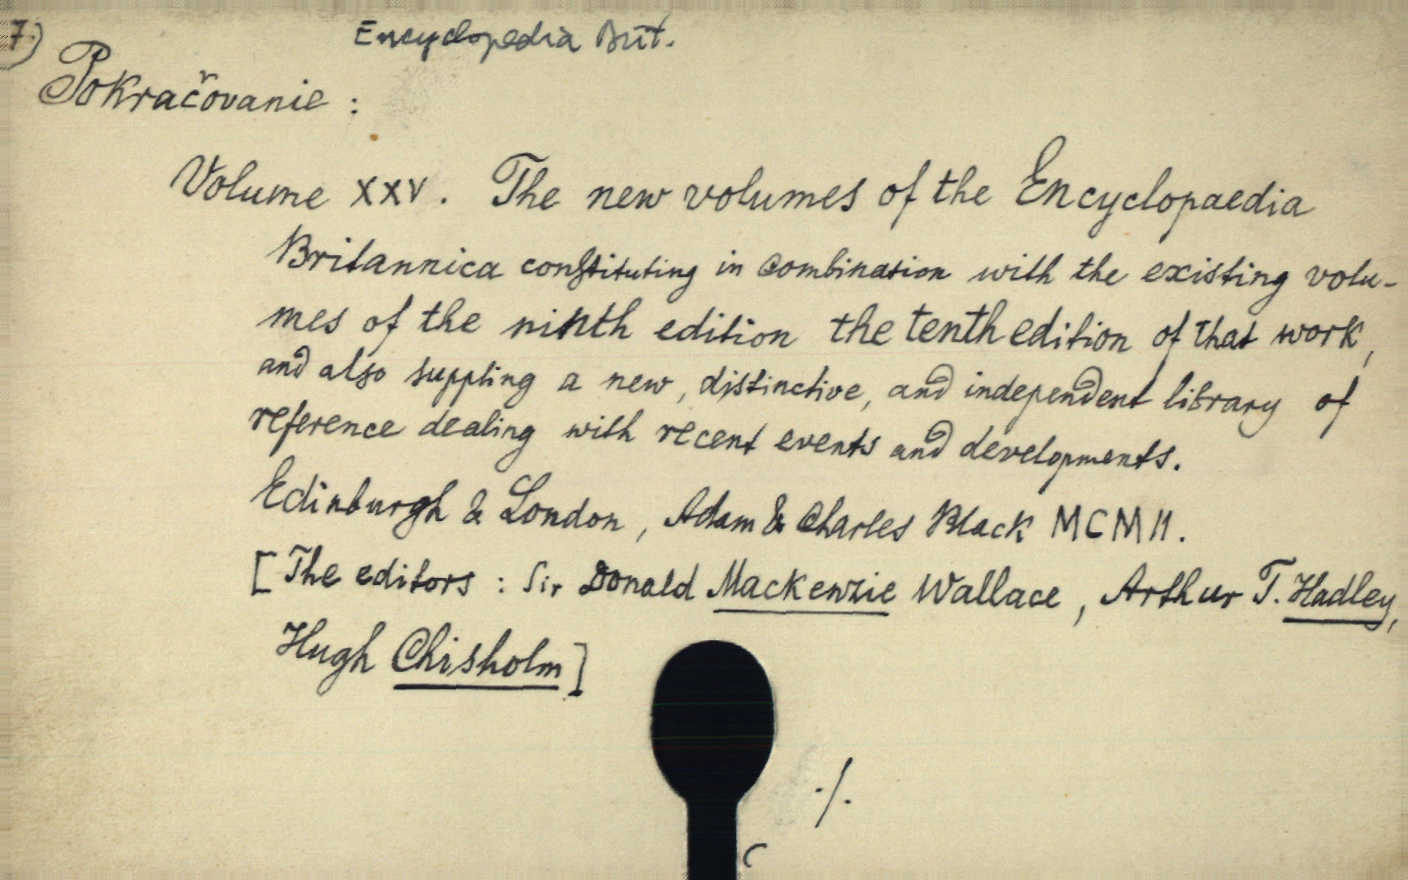 7.)
Encyclopedia Brit.
Pokračovanie :
Volume XXV. The new volumes of the Encyclopaedia
Britannica constituting in combination with the existing volu-
mes of the ninth edition the tenth edition of that work,
and also suppling a new, distinctive, and independent library of
reference dealing with recent events and developments.
Edinburgh & London, Adam & Charles Black MCMII.
[The editors : Sir Donald Mackenzie Wallace, Arthur T. Hadley,
Hugh Chisholm]
./.